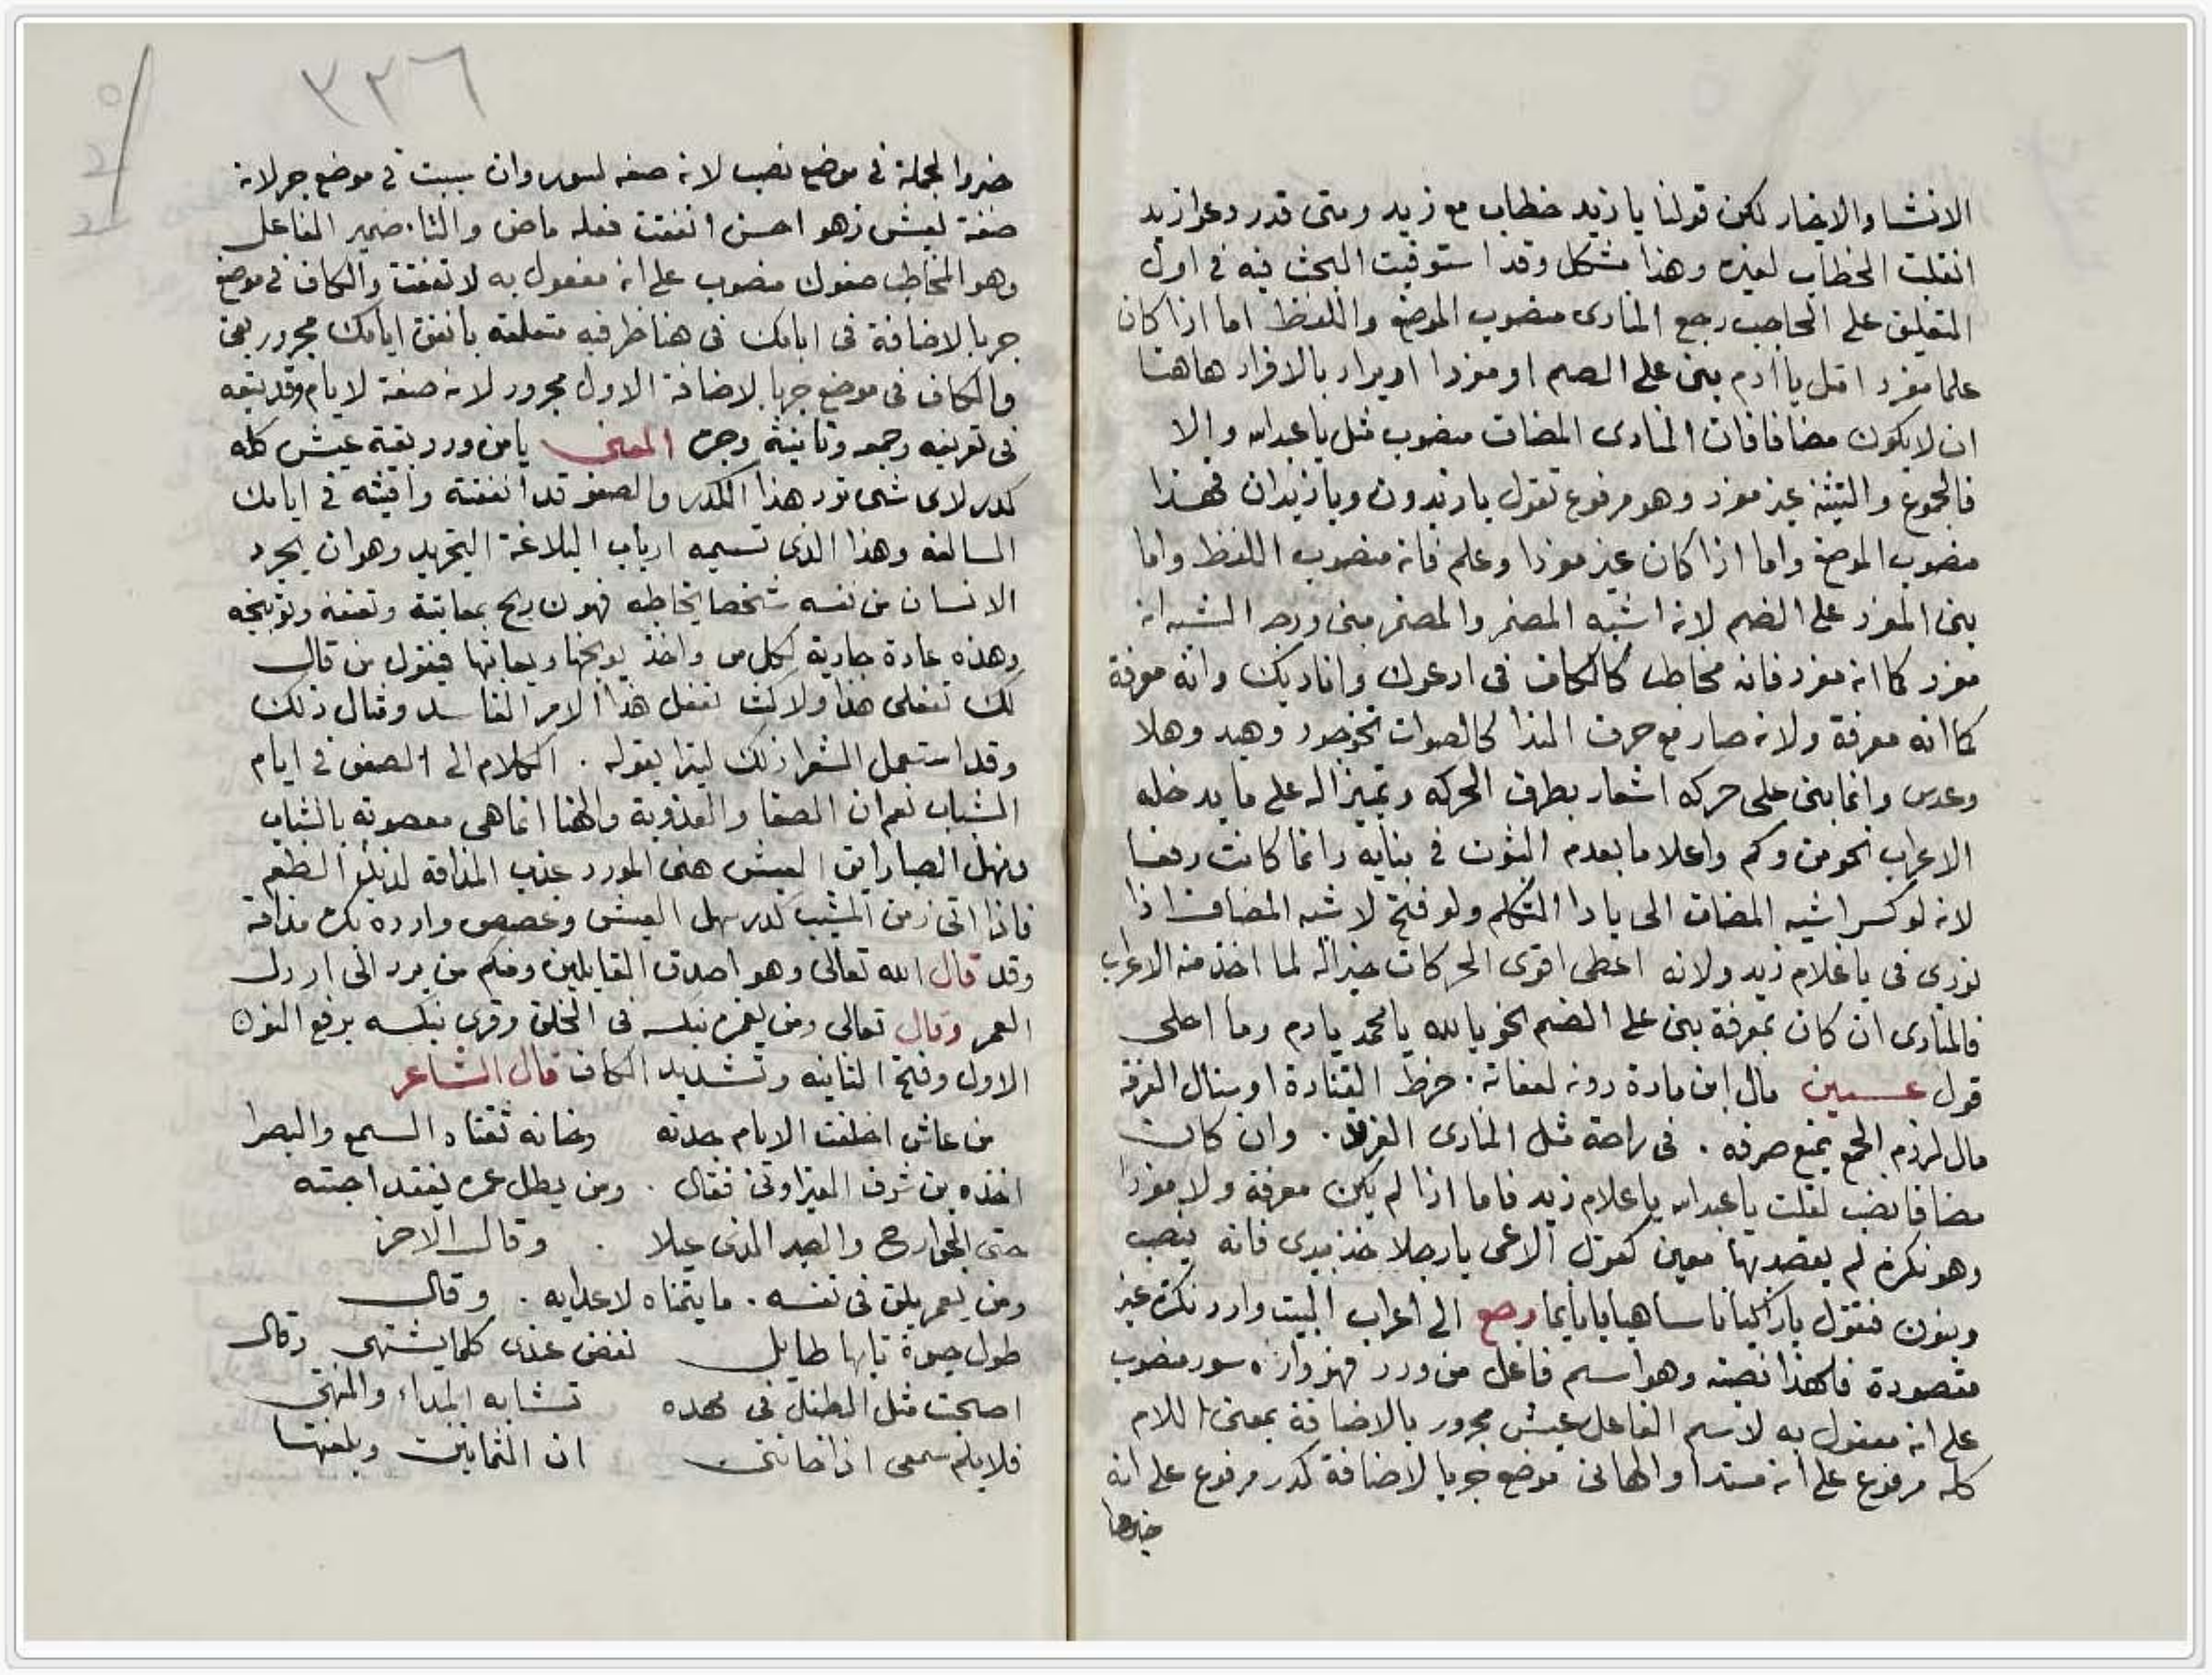 الانشا والاخبار لكن قولنا يا زيد خطاب مع زيد ومتى قدر دعوا زيد
انقلب الخطاب لغيره وهذا مشكل وقد استوفيت البحث فيه في اول
التعليق على الحاجب رجع المنادى منصوب الموضع واللفظ اما اذا كان
علما مفردا مثل يا ادم بنى على الضم او مفردا ويراد بالافراد هاهنا
ان لا يكون مضافا فان المنادى المضاف منصوب مثل يا عبدالله والا
فالجموع والتثنية غير مفرد وهو مرفوع تقول يا زيدون ويا زيدان فهذا
منصوب الموضع واما اذا كان غير مفردا وعلم فانه منصوب اللفظ واما
بنى المفرد على الضم لانه اشبه المضمر والمضمر مبنى ووجه الشبه انه
مفرد كما انه مفرد فانه مخاطب كالكاف في ادعوك واناديك وانه معرفة
كما انه معرفة ولانه صار مع حرف الندا كالصوات نحو جود وهيد وهلا
وعدس وانما بنى على حركه اشعار بطرف الحركه وتميزا له على ما يدخله
الاعراب نحو من وكم واعلاما بعدم الثبوت في بنايه وانما كانت رفعا
لانه لو كسر اشبه المضاف الى يا دا المتكلم ولو فتح لا شبه المضاف اذا
نودى في يا غلام زيد ولانه اعطى اقوى الحركات جبرا له لما اخذ منه الاعراب
فالمنادى ان كان بمعرفة بنى على الضم نحو يا الله يا محمد يادم وما احلى
قول عــسين قال ابن مادة دونه لعفاته . خرط القتادة او منال الفرقد
مال لزم الجمع يمنع صرفه . في راحة مثل المنادى المفرد . وان كان
مضافا نصب لقلت يا عبدالله يا غلام زيد فاما اذا لم يكن معرفة ولا مفردا
وهو نكرة لم يقصد بها معين كقول الاعمى يا رجلا خذ بيدى فانه ينصب
وينون فتقول يا راكبا يا ساهيا يا نايما رجع الى اعراب البيت وارد نكرة غير
مقصودة فلهذا نصبه وهو اسم فاعل من ورد فهو وارد سور منصوب
على انه مفعول به لاسم الفاعل عيش مجرور بالاضافة بمعنى اللام
كله مرفوع على انه مبتدا والها في موضع جر بالاضافة كدر مرفوع على انه
خبرها
٣٢٦
خبر والجملة في موضع نصب لانه صفه لسور وان سببت في موضع جر لانه
صفة لعيش وهو احسن انفقت فعله ماض والتا. ضمير الفاعل
وهو المخاطب صفوك منصوب على انه مفعول به لا نفقت والكاف في موضع
جر بالاضافة في ايامك في هنا ظرفيه متعلقه بانفق ايامك مجرور بفى
والكاف في موضع جر بالاضافة الاول مجرور لانه صفة لايام وقد يتبعه
في تعريفه وجمعه وتانيثه وجره المعنى يا من ورد بقية عيش كله
كدر لاى شى ترد هذا الكدر والصفو قد انفقته وافنيته في ايامك
السالفه وهذا الذى تسميه ارباب البلاغة التجريد وهو ان يجرد
الانسان من نفسه شخصا يخاطبه فهو ن يج بمعاتبة وتعنفه وتوبيخه
وهذه عادة جارية لكل من واخذ يوبخها ويعاتبها فيقول من قال
لك تفعلى هذا ولا كنت تفعل هذا الامر الفاسد ومثال ذلك
وقد استعمل الشعرا ذلك ليترا بقوله . الكلام الى الصفو في ايام
الشباب نعم ان الصفا والعذوبة والهنا انما هي معصوبة بالشباب
ومنهل الصبا رايق العيش هنى المورد عذب المذاقة لذيذ الطعم
فاذا اتى زمن المشيب كدر سهل العيش وغصص وارده بكره مذاقة
وقد قال الله تعالى وهو اصدق القايلين ومنكم من يرد الى ارذل
العمر وقال تعالى ومن نعمره ننكسه في الخلق وقرى ننكسه برفع النون
الاول وفتح الثانيه وتشديد الكاف قال الشاعر
من عاش اخلقت الايام جدته وخانه ثقتاه السمع والبصرا
اخذه بن شرف القيراونى فقال . ومن يطل عمره يفقد احبته
حتى الجوارح والصبر الذى عيلا . وقال الاخر
ومن يعمر يلق في نفسه . ما يتمناه لاعدايه . وقال
طول حيوة ما بها طايل نغض عندى كلما يشتهى وقال
اصبحت مثل الطفل في مهده تشابه المبداء والمنتهى
فلا يلم سمعى اذا خاننى ان الثمانين وبلغتها